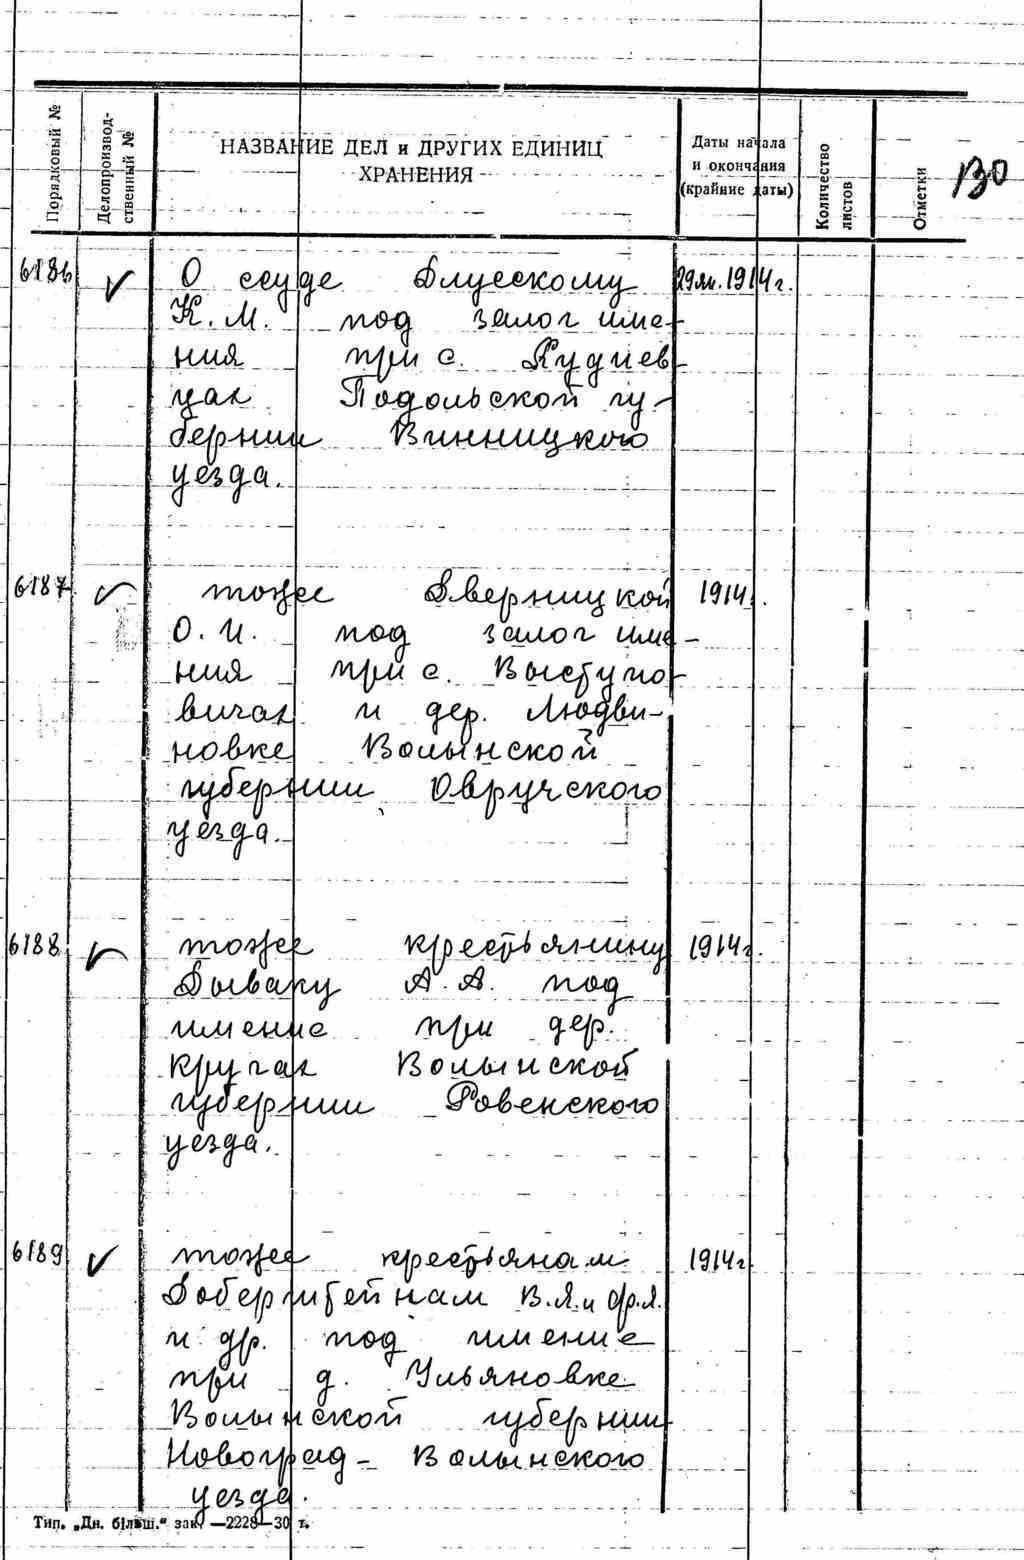 Порядковый №
Делопроизвод-
ственный №
НАЗВАНИЕ ДЕЛ и ДРУГИХ ЕДИНИЦ
ХРАНЕНИЯ
Даты начала
и окончания
(крайние даты)
Количество
листов
Отметки
130
6186 О ссуде Длусскому 29 ян. 1914 г.
К. М. под залог име-
ния при с. Кудиев
цах Подольской гу-
бернии Винницкого
уезда.
6187 тоже Дверницкой 1914 г.
О. И. под залог име-
ния при с. Выступо-
вичах и дер. Людви-
новке Волынской
губернии Овручского
уезда.
6188 тоже крестьянину 1914 г.
Дываку А. А. под
имение при дер.
Кругах Волынской
губернии Ровенского
уезда.
6189 тоже крестьянам 1914 г.
Доберштейнам В. Я. и Фр. Я.
и др. под имение
при д. Ульяновке
Волынской губернии
Новоград-Волынского
уезда.
Тип. „Дн. більш.“ зак. —2228—30 т.